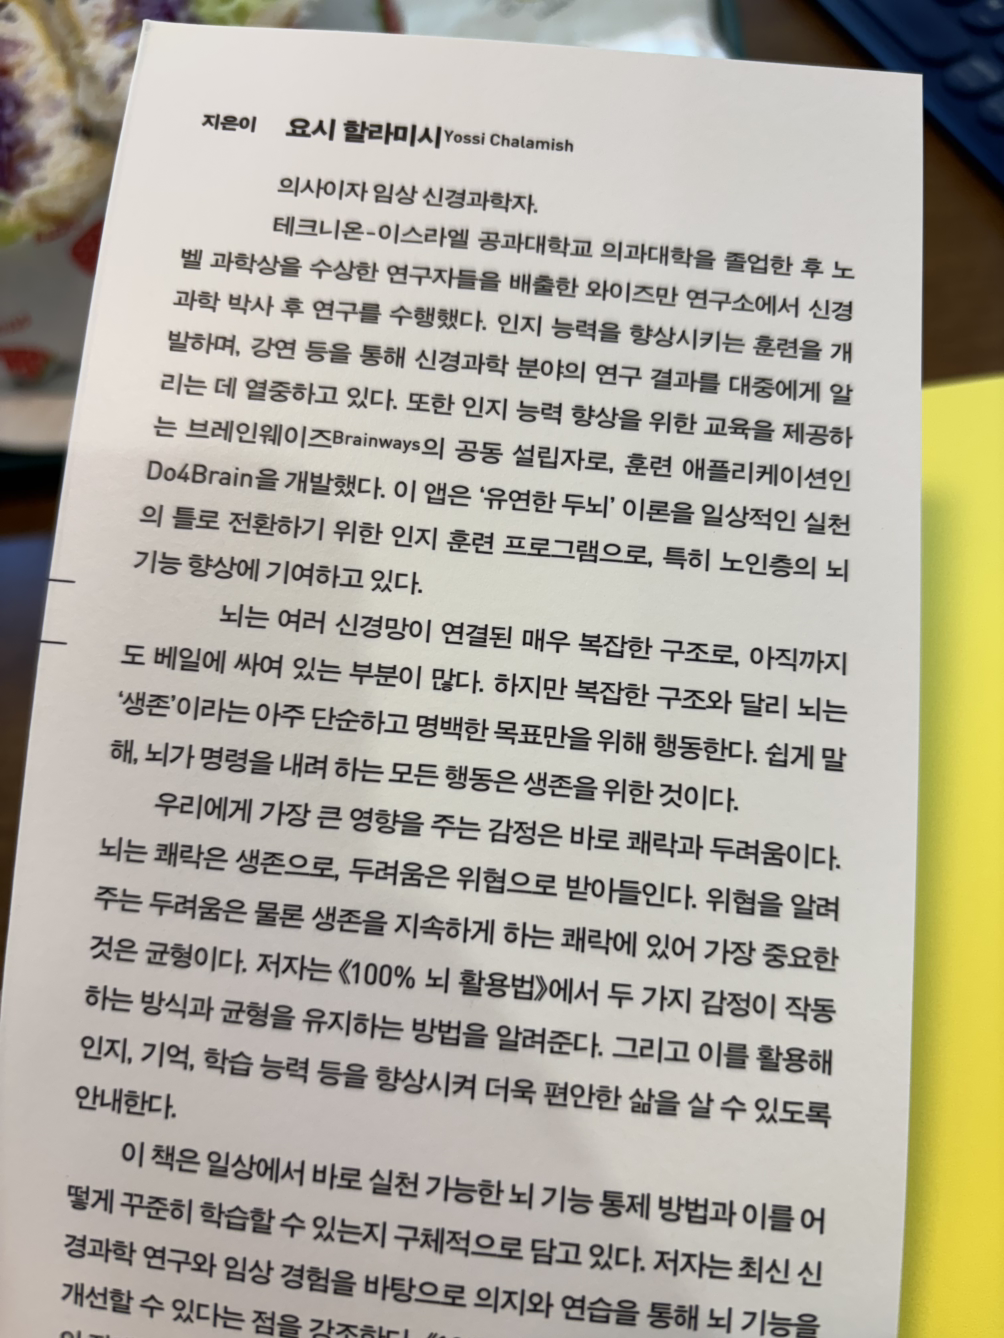 지은이 요시 할라미시 Yossi Chalamish
의사이자 임상 신경과학자.
테크니온-이스라엘 공과대학교 의과대학을 졸업한 후 노
벨 과학상을 수상한 연구자들을 배출한 와이즈만 연구소에서 신경
과학 박사 후 연구를 수행했다. 인지 능력을 향상시키는 훈련을 개
발하며, 강연 등을 통해 신경과학 분야의 연구 결과를 대중에게 알
리는 데 열중하고 있다. 또한 인지 능력 향상을 위한 교육을 제공하
는 브레인웨이즈Brainways의 공동 설립자로, 훈련 애플리케이션인
Do4Brain을 개발했다. 이 앱은 ‘유연한 두뇌’ 이론을 일상적인 실천
의 틀로 전환하기 위한 인지 훈련 프로그램으로, 특히 노인층의 뇌
기능 향상에 기여하고 있다.
뇌는 여러 신경망이 연결된 매우 복잡한 구조로, 아직까지
도 베일에 싸여 있는 부분이 많다. 하지만 복잡한 구조와 달리 뇌는
‘생존’이라는 아주 단순하고 명백한 목표만을 위해 행동한다. 쉽게 말
해, 뇌가 명령을 내려 하는 모든 행동은 생존을 위한 것이다.
우리에게 가장 큰 영향을 주는 감정은 바로 쾌락과 두려움이다.
뇌는 쾌락은 생존으로, 두려움은 위협으로 받아들인다. 위협을 알려
주는 두려움은 물론 생존을 지속하게 하는 쾌락에 있어 가장 중요한
것은 균형이다. 저자는 《100% 뇌 활용법》에서 두 가지 감정이 작동
하는 방식과 균형을 유지하는 방법을 알려준다. 그리고 이를 활용해
인지, 기억, 학습 능력 등을 향상시켜 더욱 편안한 삶을 살 수 있도록
안내한다.
이 책은 일상에서 바로 실천 가능한 뇌 기능 통제 방법과 이를 어
떻게 꾸준히 학습할 수 있는지 구체적으로 담고 있다. 저자는 최신 신
경과학 연구와 임상 경험을 바탕으로 의지와 연습을 통해 뇌 기능을
개선할 수 있다는 점을 강조한다.